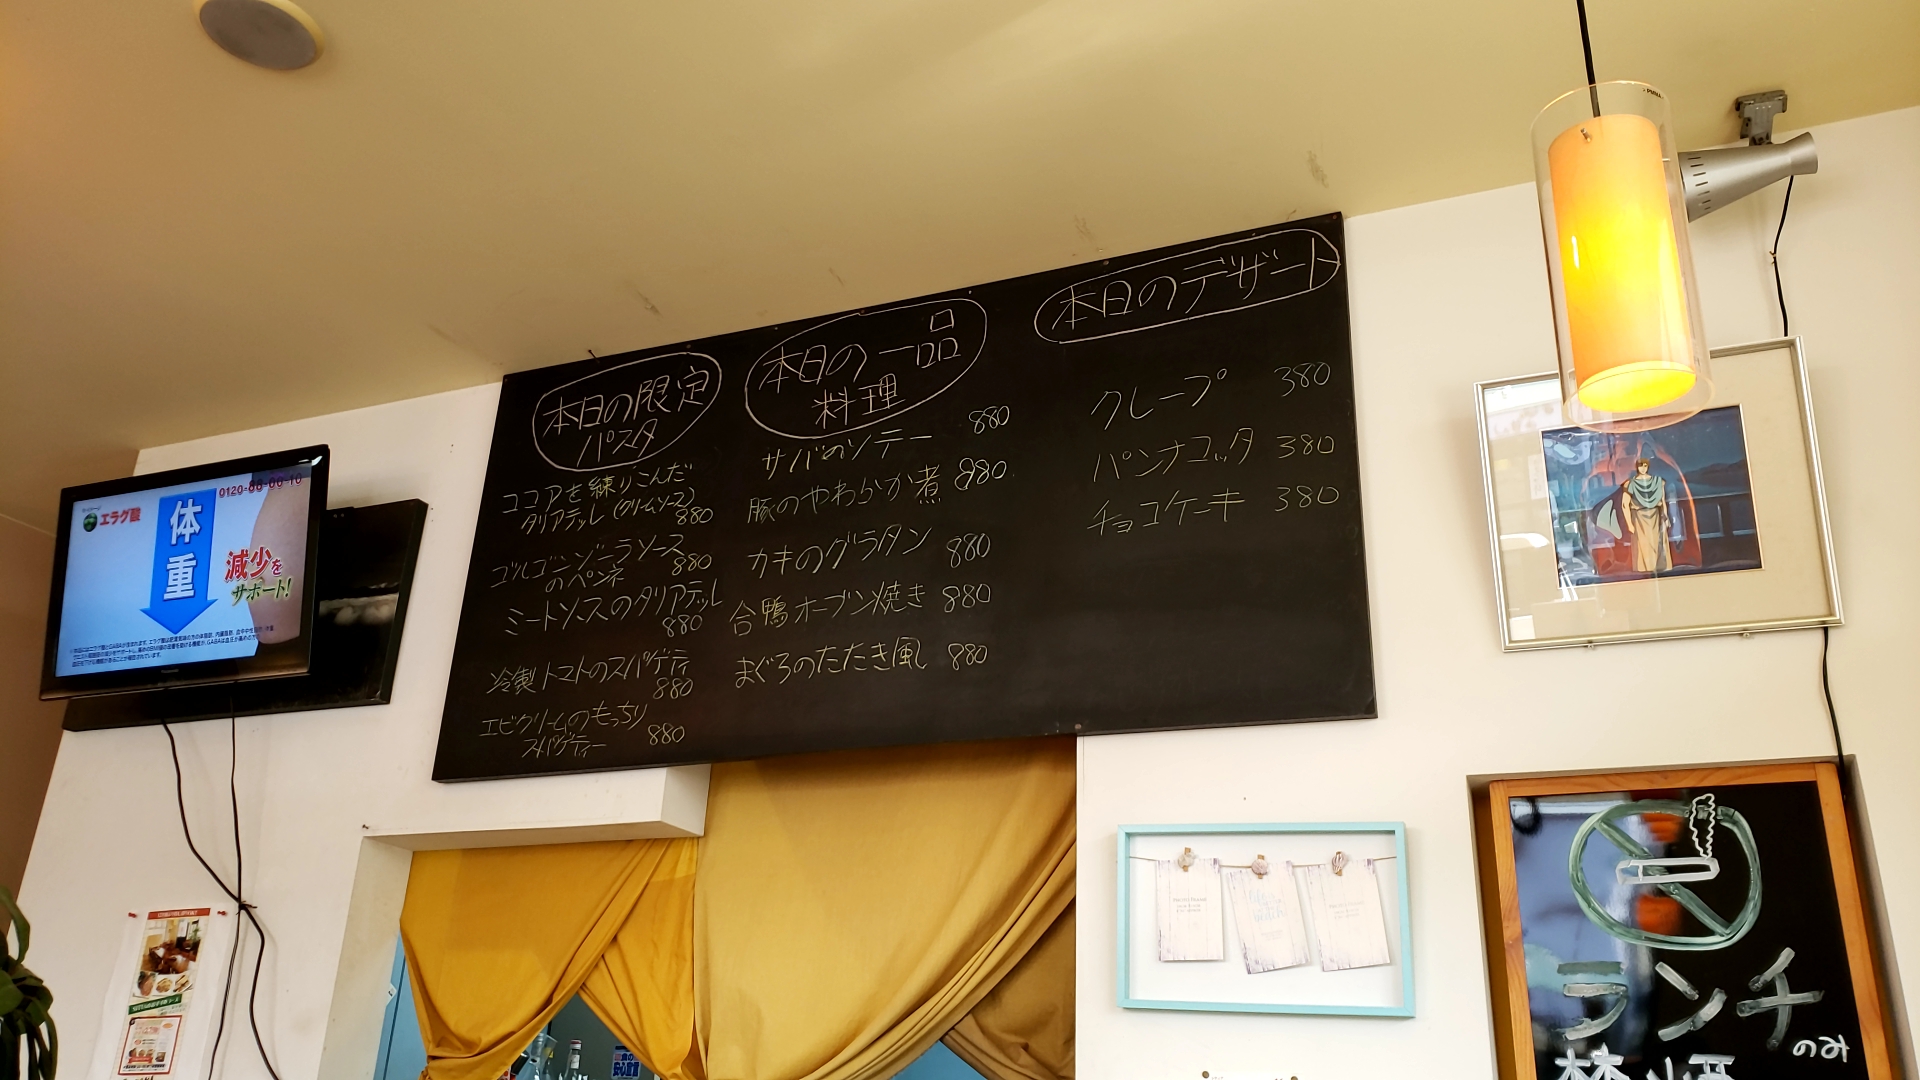 エラグ酸
0120-88-00-10
体重
減少を
サポート!
本日の限定
パスタ
ココアを練りこんだ
タリアテッレ(クリームソース)
880
ゴルゴンゾーラソース
のペンネ 880
ミートソースのタリアテッレ
880
冷製トマトのスパゲティ
880
エビクリームのもっちり
スパゲティー 880
本日の一品
料理
サバのソテー 880
豚のやわらか煮 880
カキのグラタン 880
合鴨オーブン焼き 880
まぐろのたたき風 880
本日のデザート
クレープ 380
パンナコッタ 380
チョコケーキ 380
ランチ
のみ
禁煙